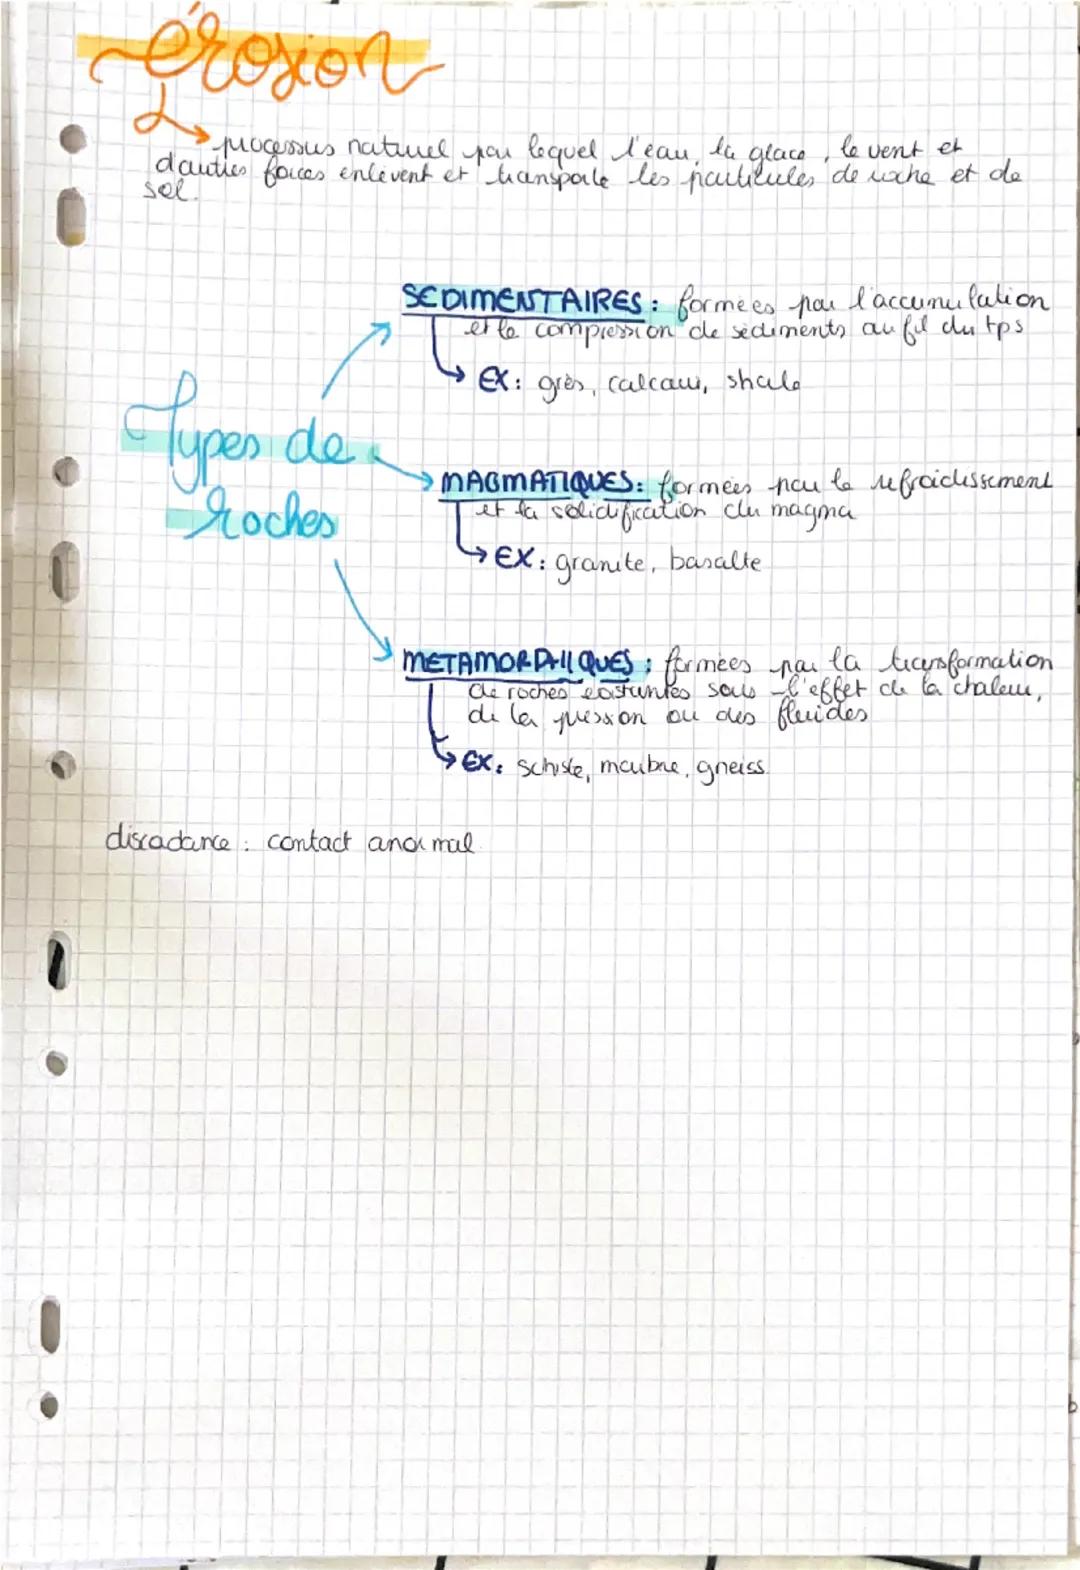 érosion
processus naturel par lequel l'eau, la glace, le vent et
d'autres forces enlèvent et transporte les particules de roche et de
sol.
SEDIMENTAIRES : formées par l'accumulation
et le compression de sédiments au fil du tps
EX : grès, calcaire, shale
Types de
roches
MAGMATIQUES : formées par le refroidissement
et la solidification du magma
EX : granite, basalte
METAMORPHIQUES : formées par la transformation
de roches existantes sous l'effet de la chaleur,
de la pression ou des fluides
EX : schiste, marbre, gneiss
discadance : contact anormal